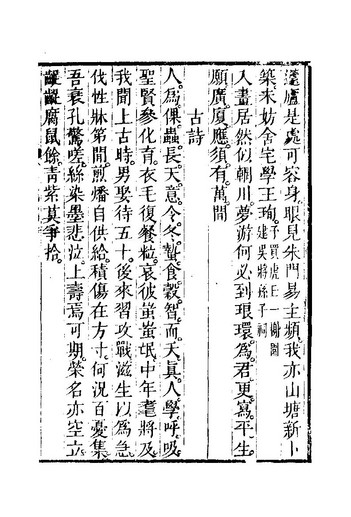 蘧廬是處可容身眼見朱門易主頻我亦山塘新卜
築未妨舍宅學王珣予買虎丘一謝園建吳將孫子祠
入畫居然似輞川。夢游何必到瑯環。爲君更寫平生
願。廣廈應須有萬間
古詩
人爲倮蟲長。天意令冬蟄。食穀智而夭。真人學呼吸。
聖賢參化育。衣毛復餐粒。哀彼蚩蚩氓。中年耄將及。
我聞上古時。男娶待五十。後來習攻戰。滋生以爲急。
伐性牀笫間。煎燔自供給。積傷在方寸。何況百憂集。
吾衰孔驚嗟。絲染墨悲泣。上壽焉可期。榮名亦空立。
齷齪腐鼠餘。青紫莫爭拾。